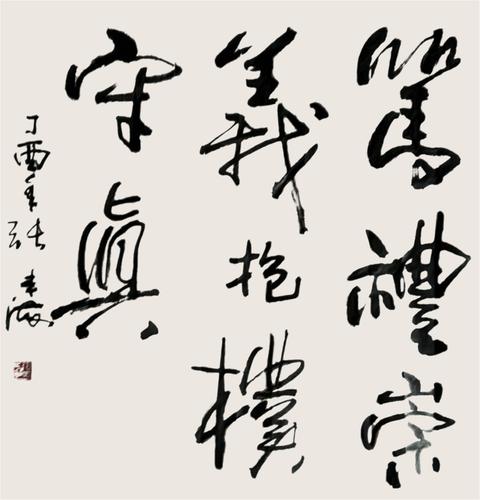 篤禮崇
義抱樸
守真
丁酉年張青海